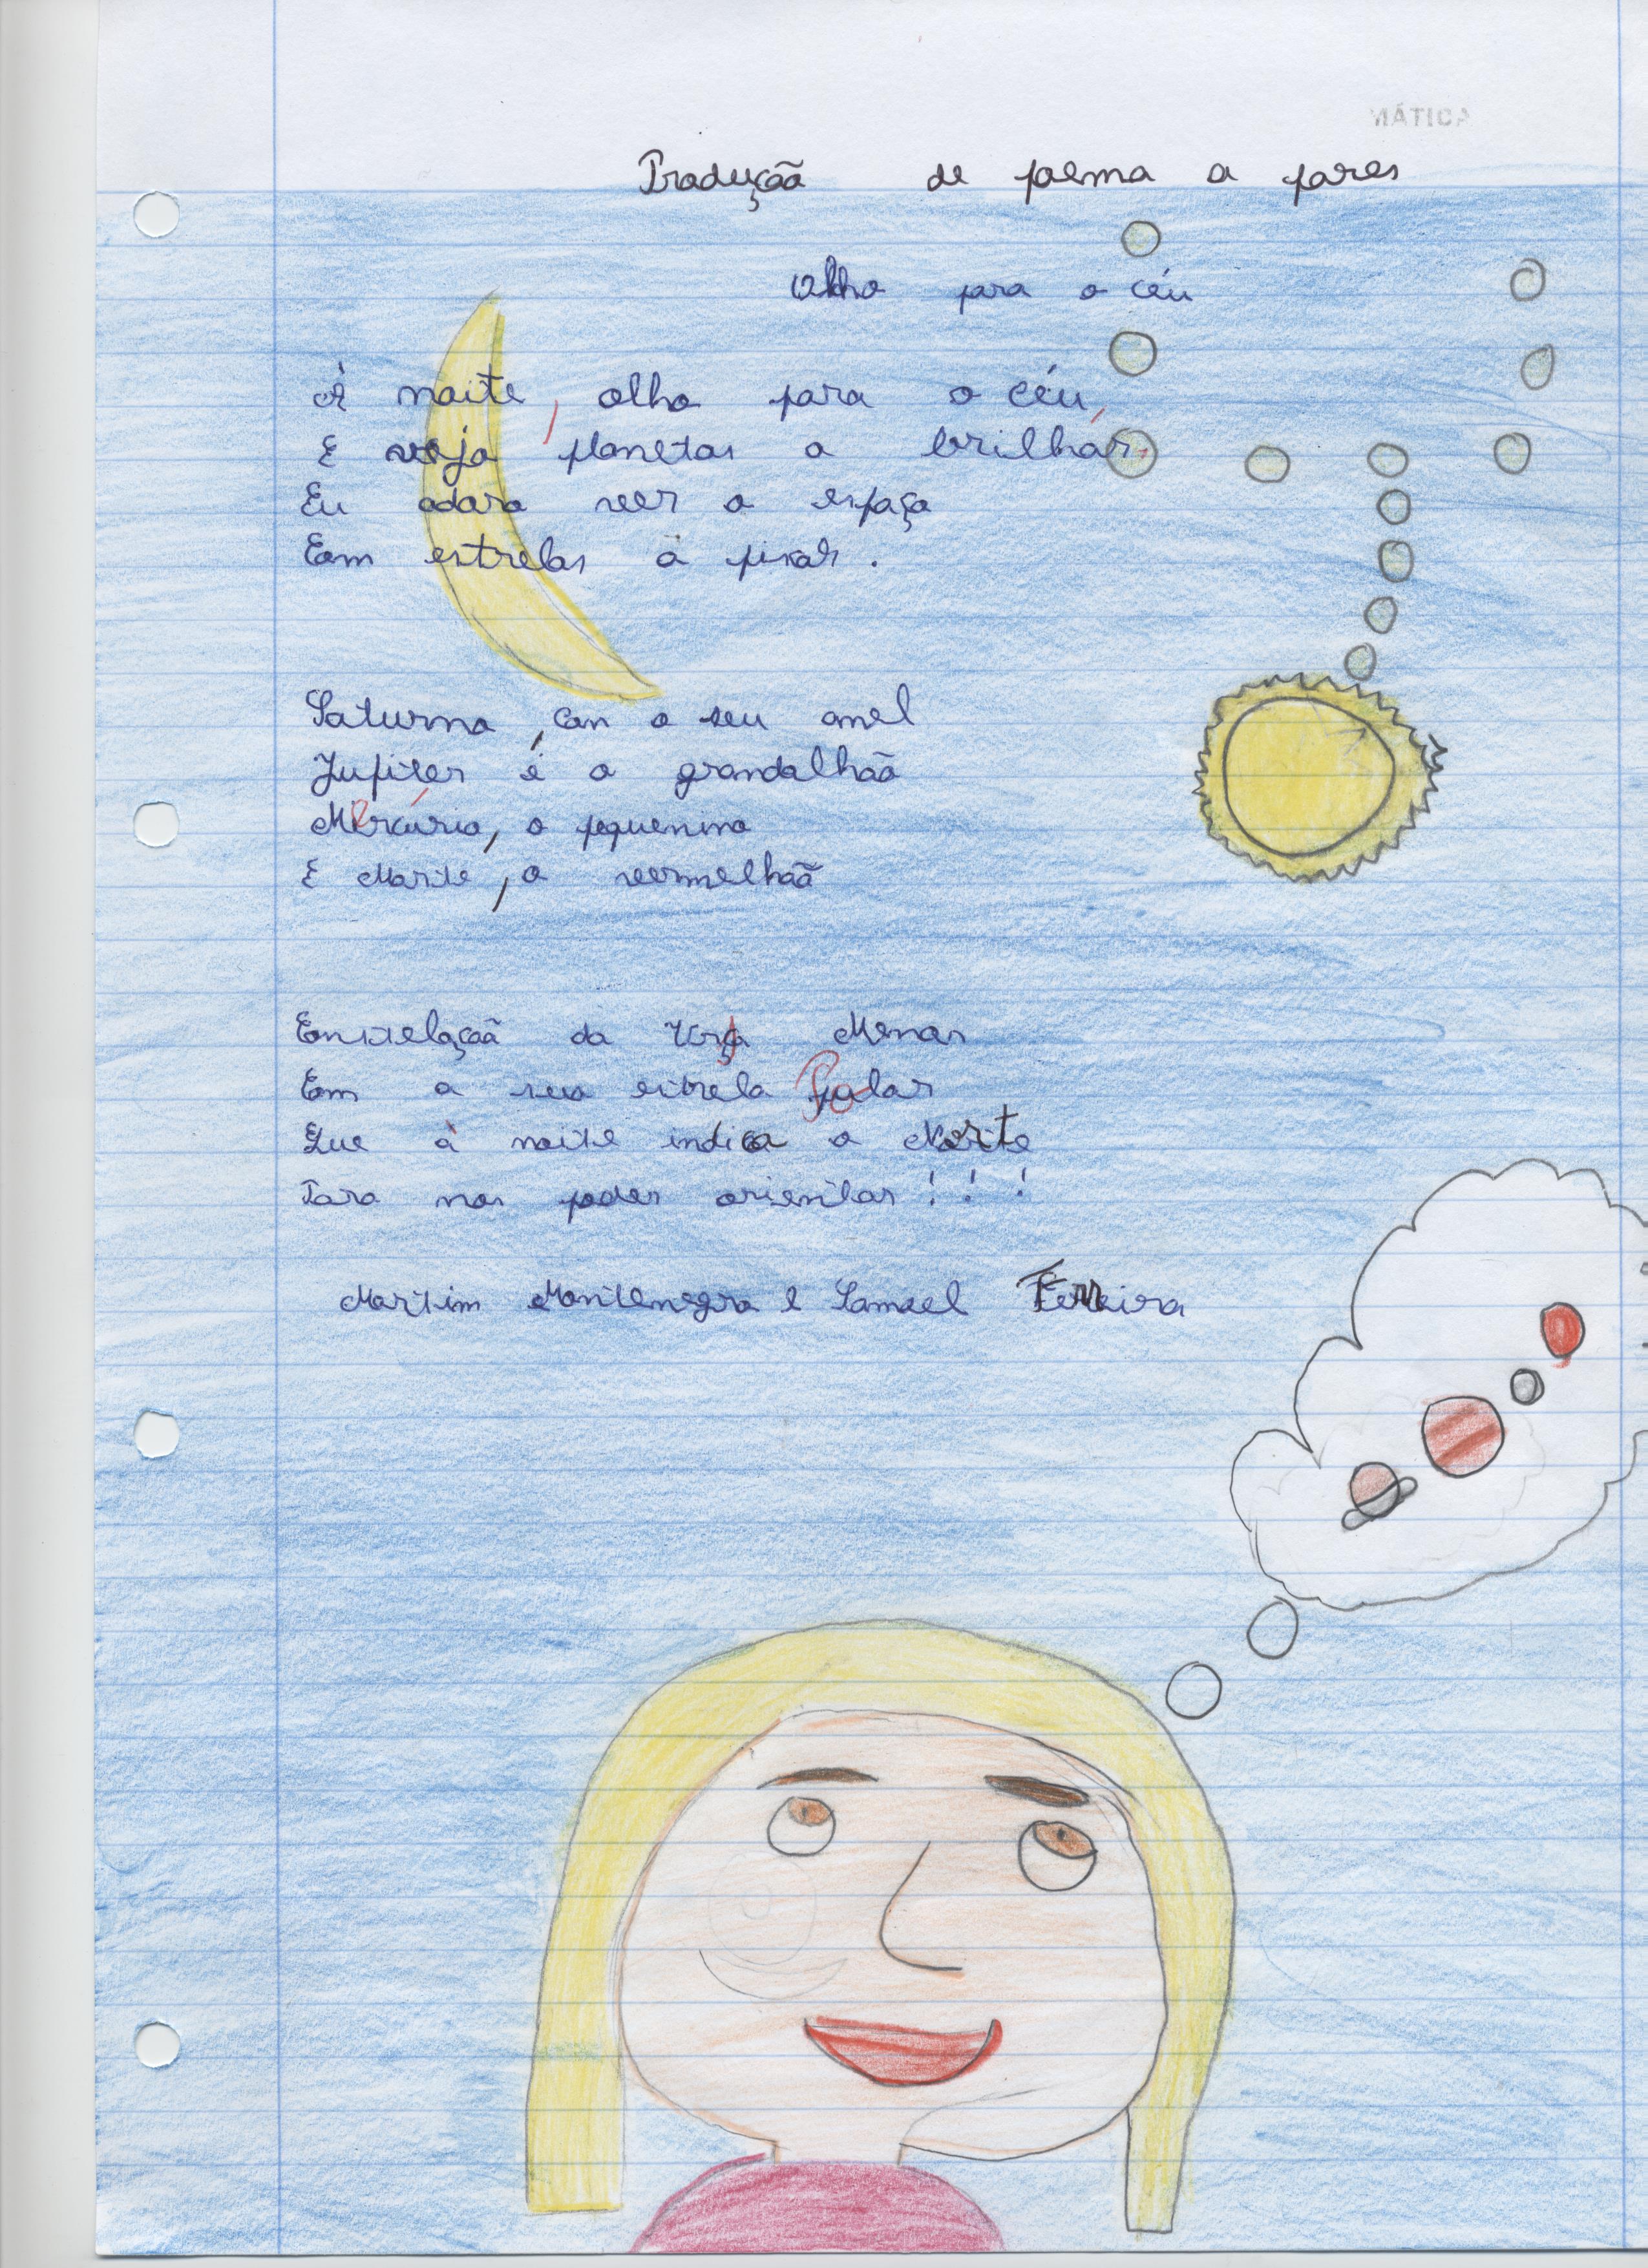 MÁTICA
Produção de poema a pares
Olho para o céu
À noite, olho para o céu,
E vejo planetas a brilhar.
Eu adoro ver o espaço
Com estrelas a piscar.
Saturno, con o seu anel
Jupiter é o grandalhão
Mercúrio, o pequenino
E Marte, o vermelhão
Constelação da Ursa Menor
Com a sua estrela Polar
Que à noite indica o Norte
Para nos poder orientar!!!
Martim Montenegro e Samuel Ferreira